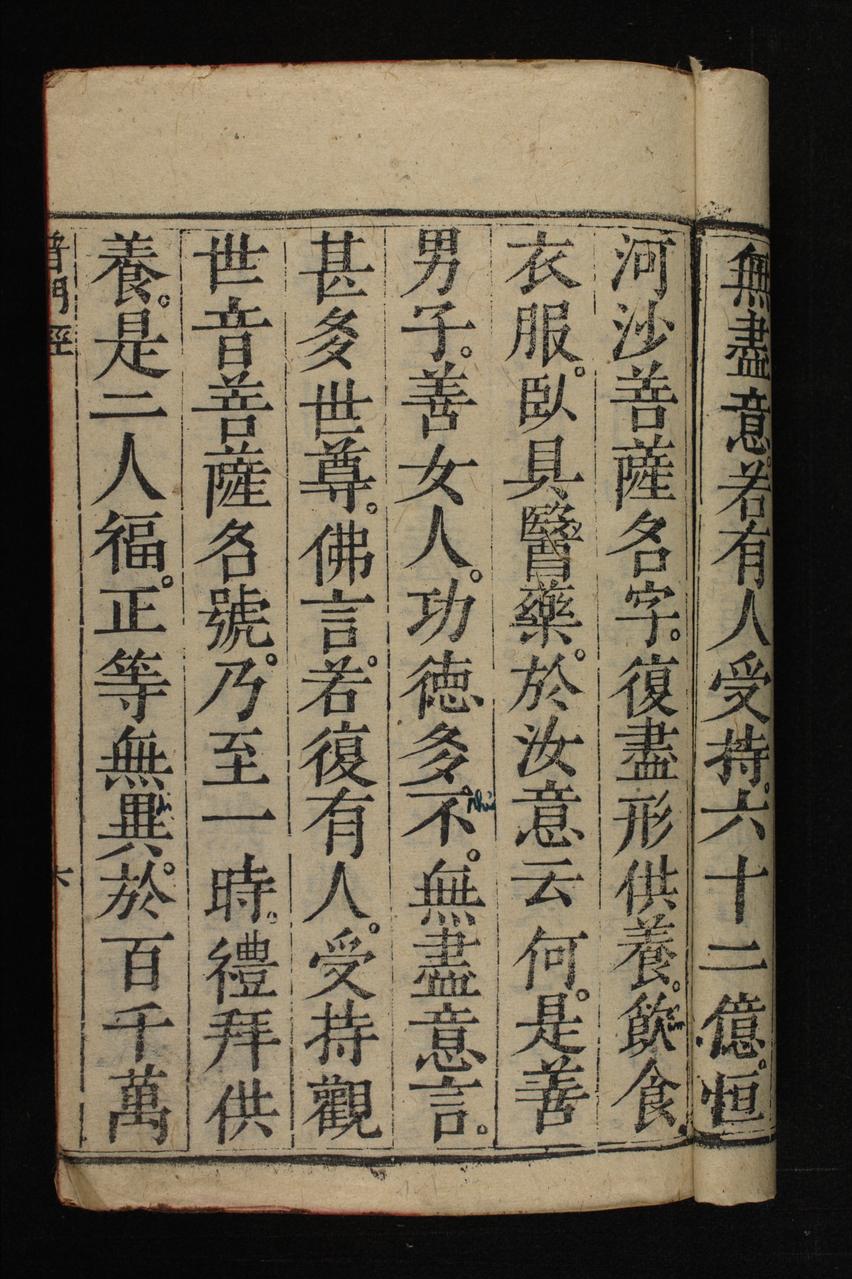 無盡意。若有人受持。六十二億。恒
河沙菩薩名字。復盡形供養。飲食
衣服。臥具醫藥。於汝意云何。是善
男子。善女人。功德多不。無盡意言。
甚多世尊。佛言。若復有人。受持觀
世音菩薩名號。乃至一時。禮拜供
養。是二人福。正等無異。於百千萬
普門經
六